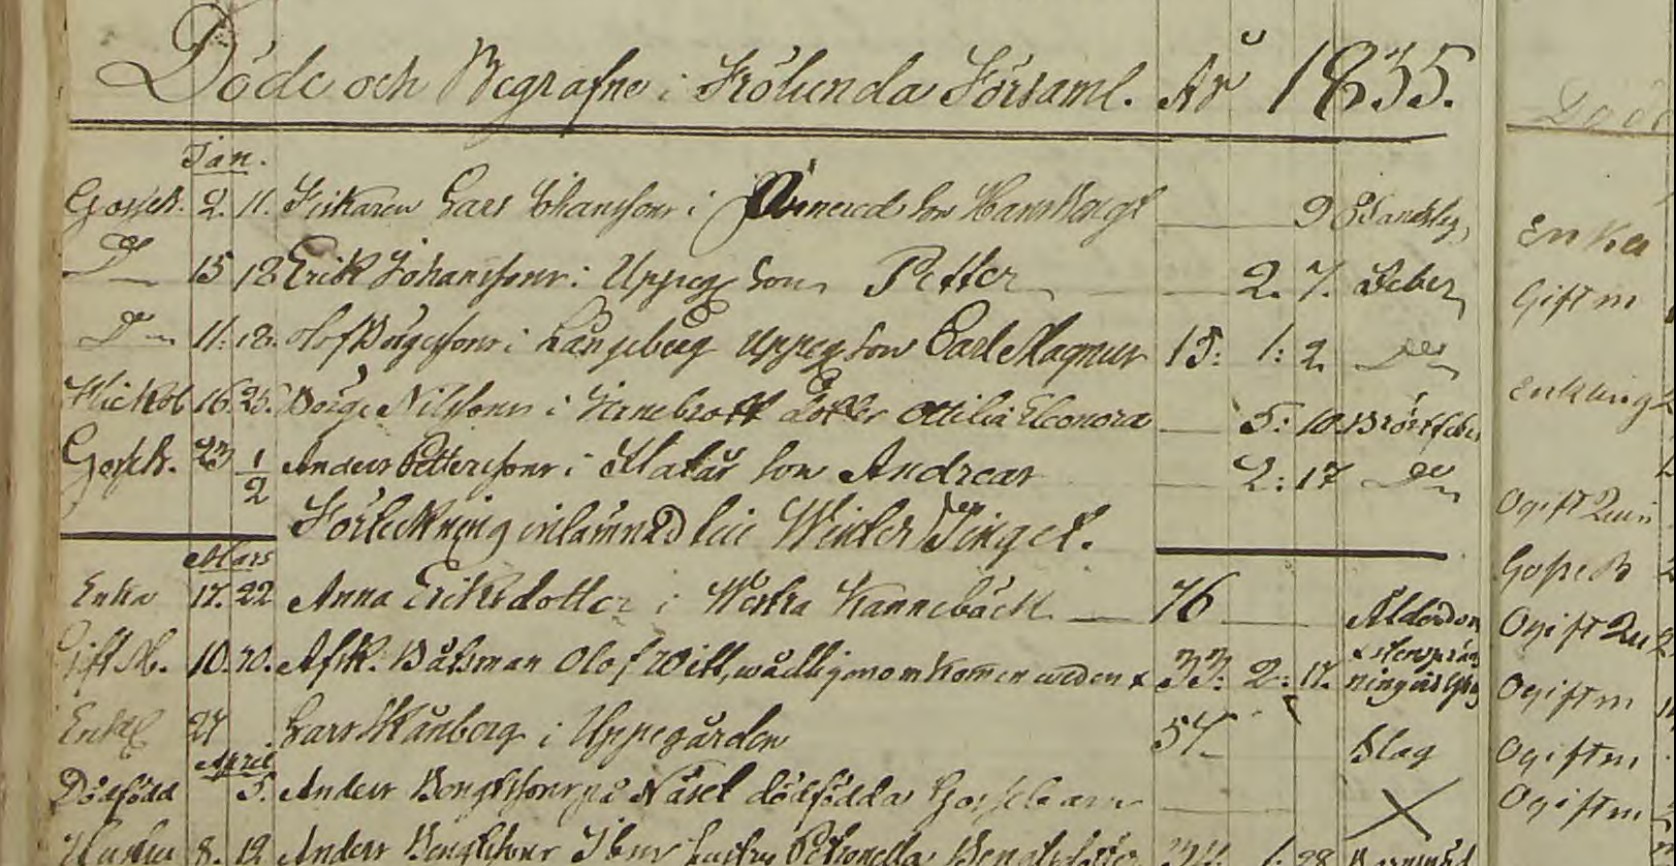 Döde och Begrafne i Frölunda Församl. År 1835.
Jan.
Gosseb. 2. 11. Fiskaren Lars Johansson i Önnered son Hans Bengt 9
Do 15 18 Erik Johansson i Uppeg son Petter 2. 7. Feber
Do 11. 18. Olof Börgesson i Långeberg Uppeg son Carl Magnus 15: 1: 2. Do
Flickeb 16. 25. Börge Nilsson i Jernebrott dotter Ottilia Eleonora 5: 10. Bröstfeber
Gosseb. 23 1/2 Anders Pettersson i son Andreas 2: 17 Do
Förteckning inlämnad till Winter Tinget.
Mars
Enka 17. 22 Anna Eriksdotter i Westra Kannebäck 76 Ålderdom
Gift M. 10. 20. Afsk. Båtsman Olof Witt, wådligen omkommen weden x 33: 2: 17. x stensprängning
Enkl 27 Lars Skånberg i Uppegården 54 Slag
April
Dödfödd 5. Anders Bengtsson på Näset dödfödda Gossebarn
Hustru 8. 12 Anders Bengtsson hustru Petronella Bengtsdotter 34: 1: 28 Barnsäd
Död
Enka
Gift m
Enkling
Ogift Quin
Gosse B
Ogift Qu
Ogift m
Ogift m
Ogift m